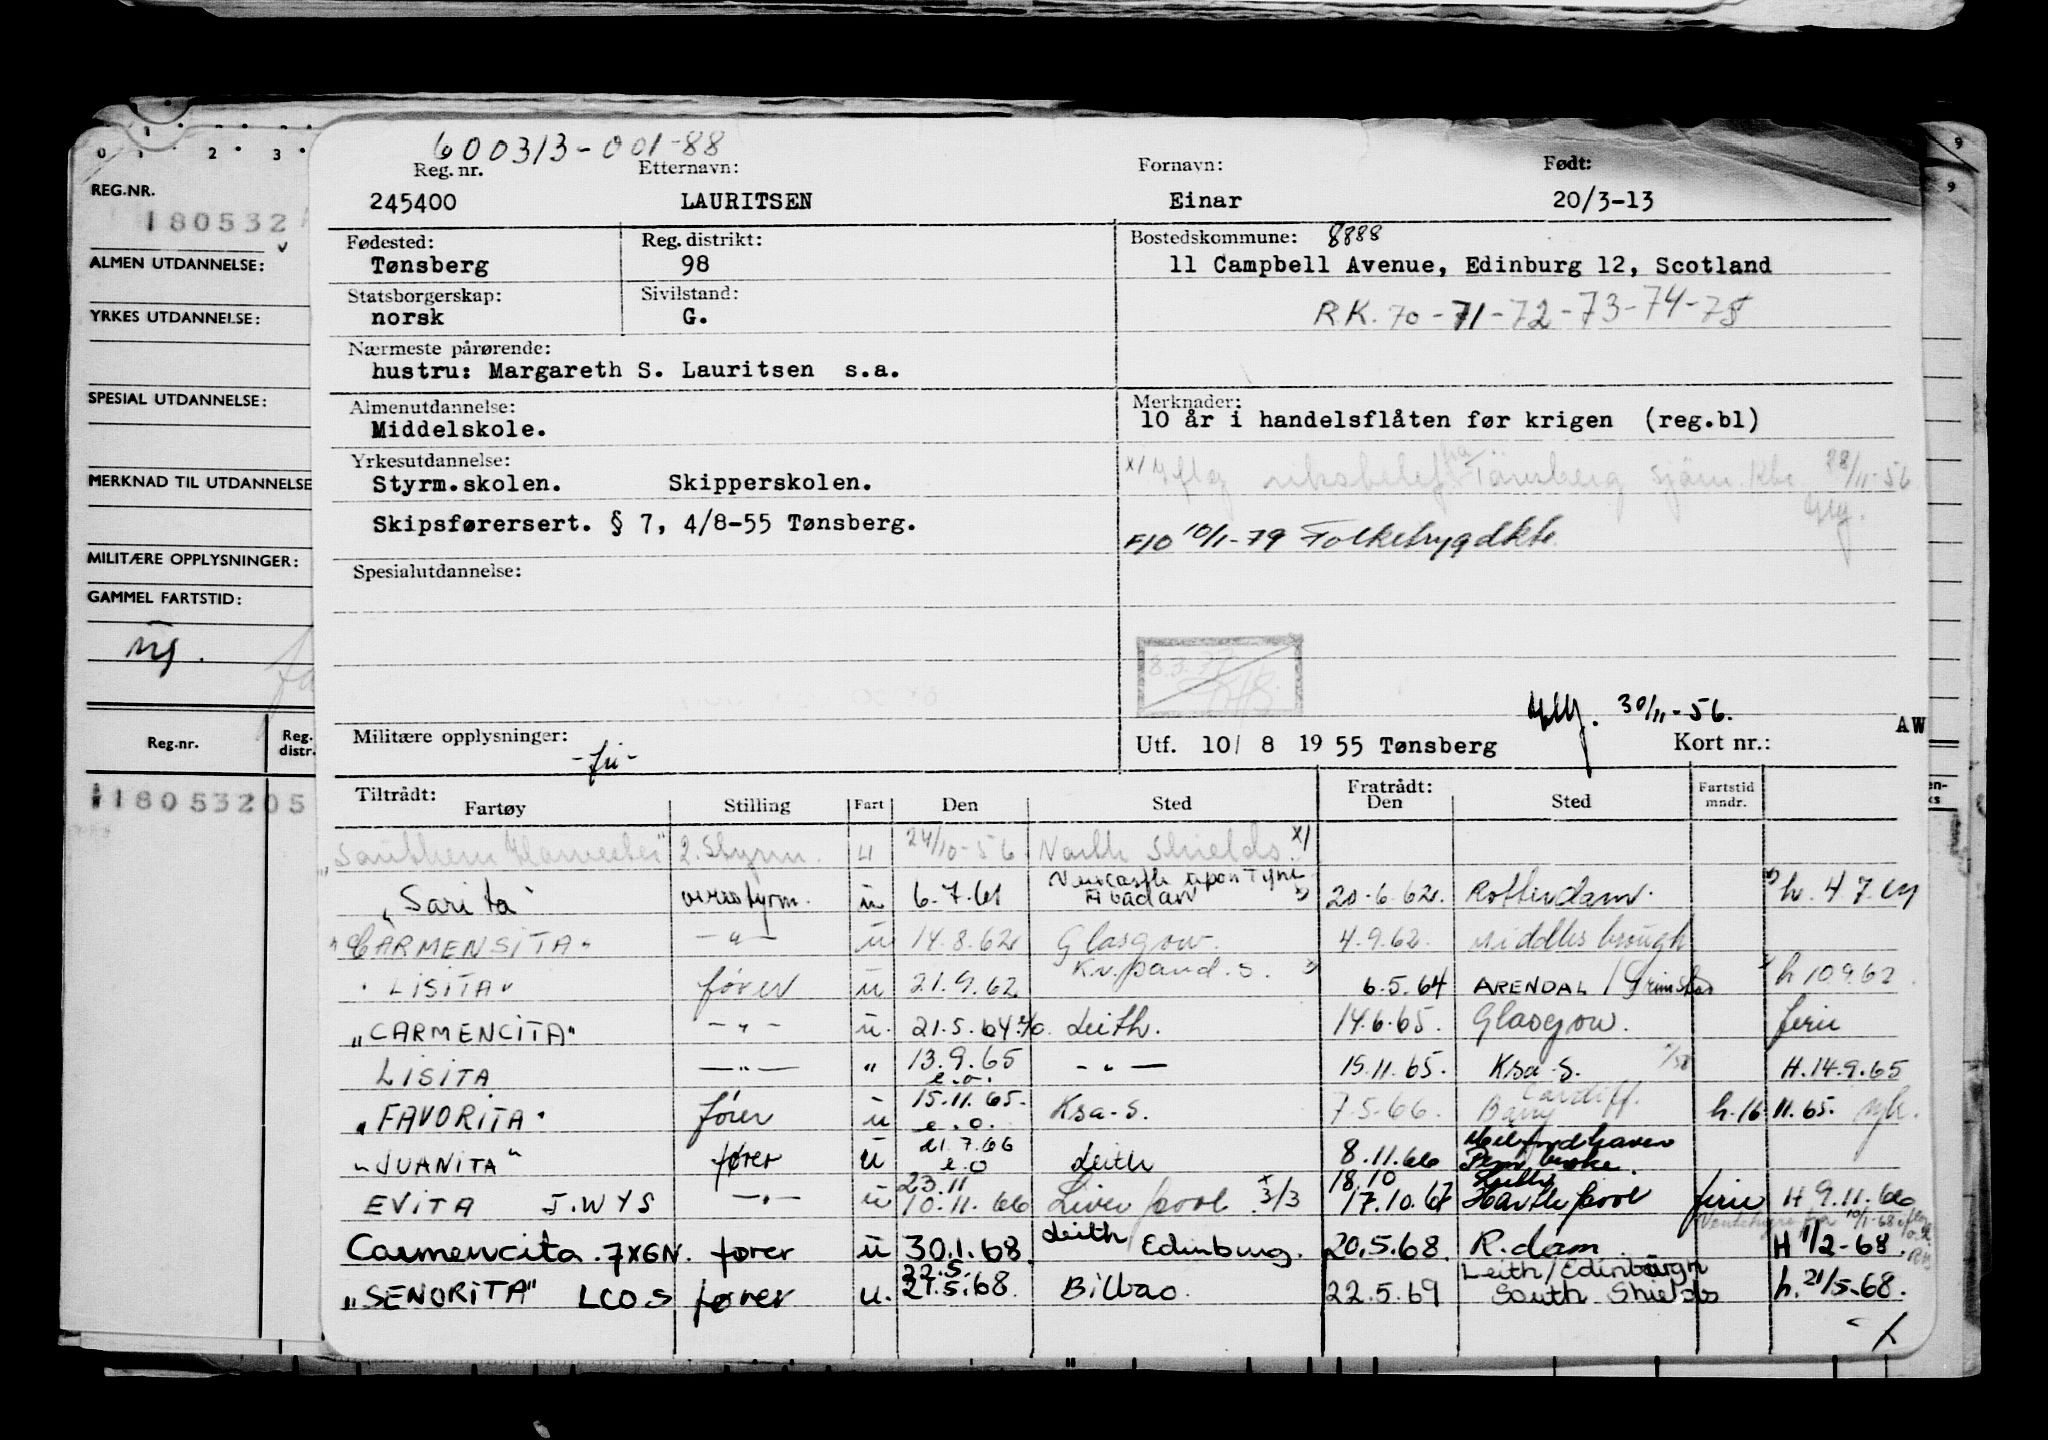 0 1 2 3
REG.NR.
180532
ALMEN UTDANNELSE:
YRKES UTDANNELSE:
SPECIAL UTDANNELSE:
MERKNAD TIL UTDANNELSE
MILITÆRE OPPLYSNINGER:
GAMMEL FARTSTID:
Reg.nr. Reg. distr.
18053205
9
9
600313-001-88
Reg. nr. Etternavn: Fornavn: Født:
245400 LAURITSEN Einar 20/3-13
Fødested: Reg. distrikt: Bostedskommune: 8888
Tønsberg 98 11 Campbell Avenue, Edinburg 12, Scotland
Statsborgerskap: Sivilstand:
norsk G. R.K. 70-71-72-73-74-75
Nærmeste pårørende:
hustru: Margareth S. Lauritsen s.a.
Almenutdannelse: Merknader:
Middelskole. 10 år i handelsflåten før krigen (reg.bl)
Yrkesutdannelse:
Styrm.skolen. Skipperskolen.
Tönsberg sjöm. Kto. 28/11-56
Skipsførersert. § 7, 4/8-55 Tønsberg.
F/O 10/1-79 Folketrygdkto.
Spesialutdannelse:
30/11-56.
Militære opplysninger: Utf. 10/ 8 19 55 Tønsberg Kort nr.: AW
-fri-
Tiltrådt: Fratrådt: Fartstid mndr.
Fartøy Stilling Fart Den Sted Den Sted
"Southern Harvester" 2. Styrm. u 24/10-56 North Shields x/
Newcastle upon Tyne
"Sarita" overstyrm. u 6.7.61 Abadan 20.6.62 Rotterdam. h. 4 7. 61
"CARMENSITA" -"- u 14.8.62 Glasgow. 4.9.62. Middlesbrough
"LISITA" fører u 21.9.62 Kr.sand.S. 6.5.64 ARENDAL / Grimstad h 10 9.62
"CARMENCITA" -"- u. 21.5.64 e/o. Leith. 14.6.65. Glasgow. ferie
LISITA -"- " 13.9.65 e.o. -"- 15.11.65. Ksa-S. H.14.9.65
"FAVORITA" fører u 15.11.65. e.o. Ksa-S. 7.5.66. Barry Cardiff. h.16 11.65.
"JUANITA" fører u 21.7.66 e.o Leith 8.11.66 Milfordhaven Pembroke.
23.11 18.10 Leith
EVITA J.WYS -"- u 10.11.66 Liverpool x 3/3 17.10.67 Hartlepool ferie H 9.11.66
Carmencita. 7XGN. fører u 30.1.68 Leith Edinburg. 20.5.68. R.dam H 1/2-68.
22.5. Leith/Edinburgh
"SENORITA" LCOS fører u. 21.5.68. Bilbao. 22.5.69 South Shields h. 21/5-68.